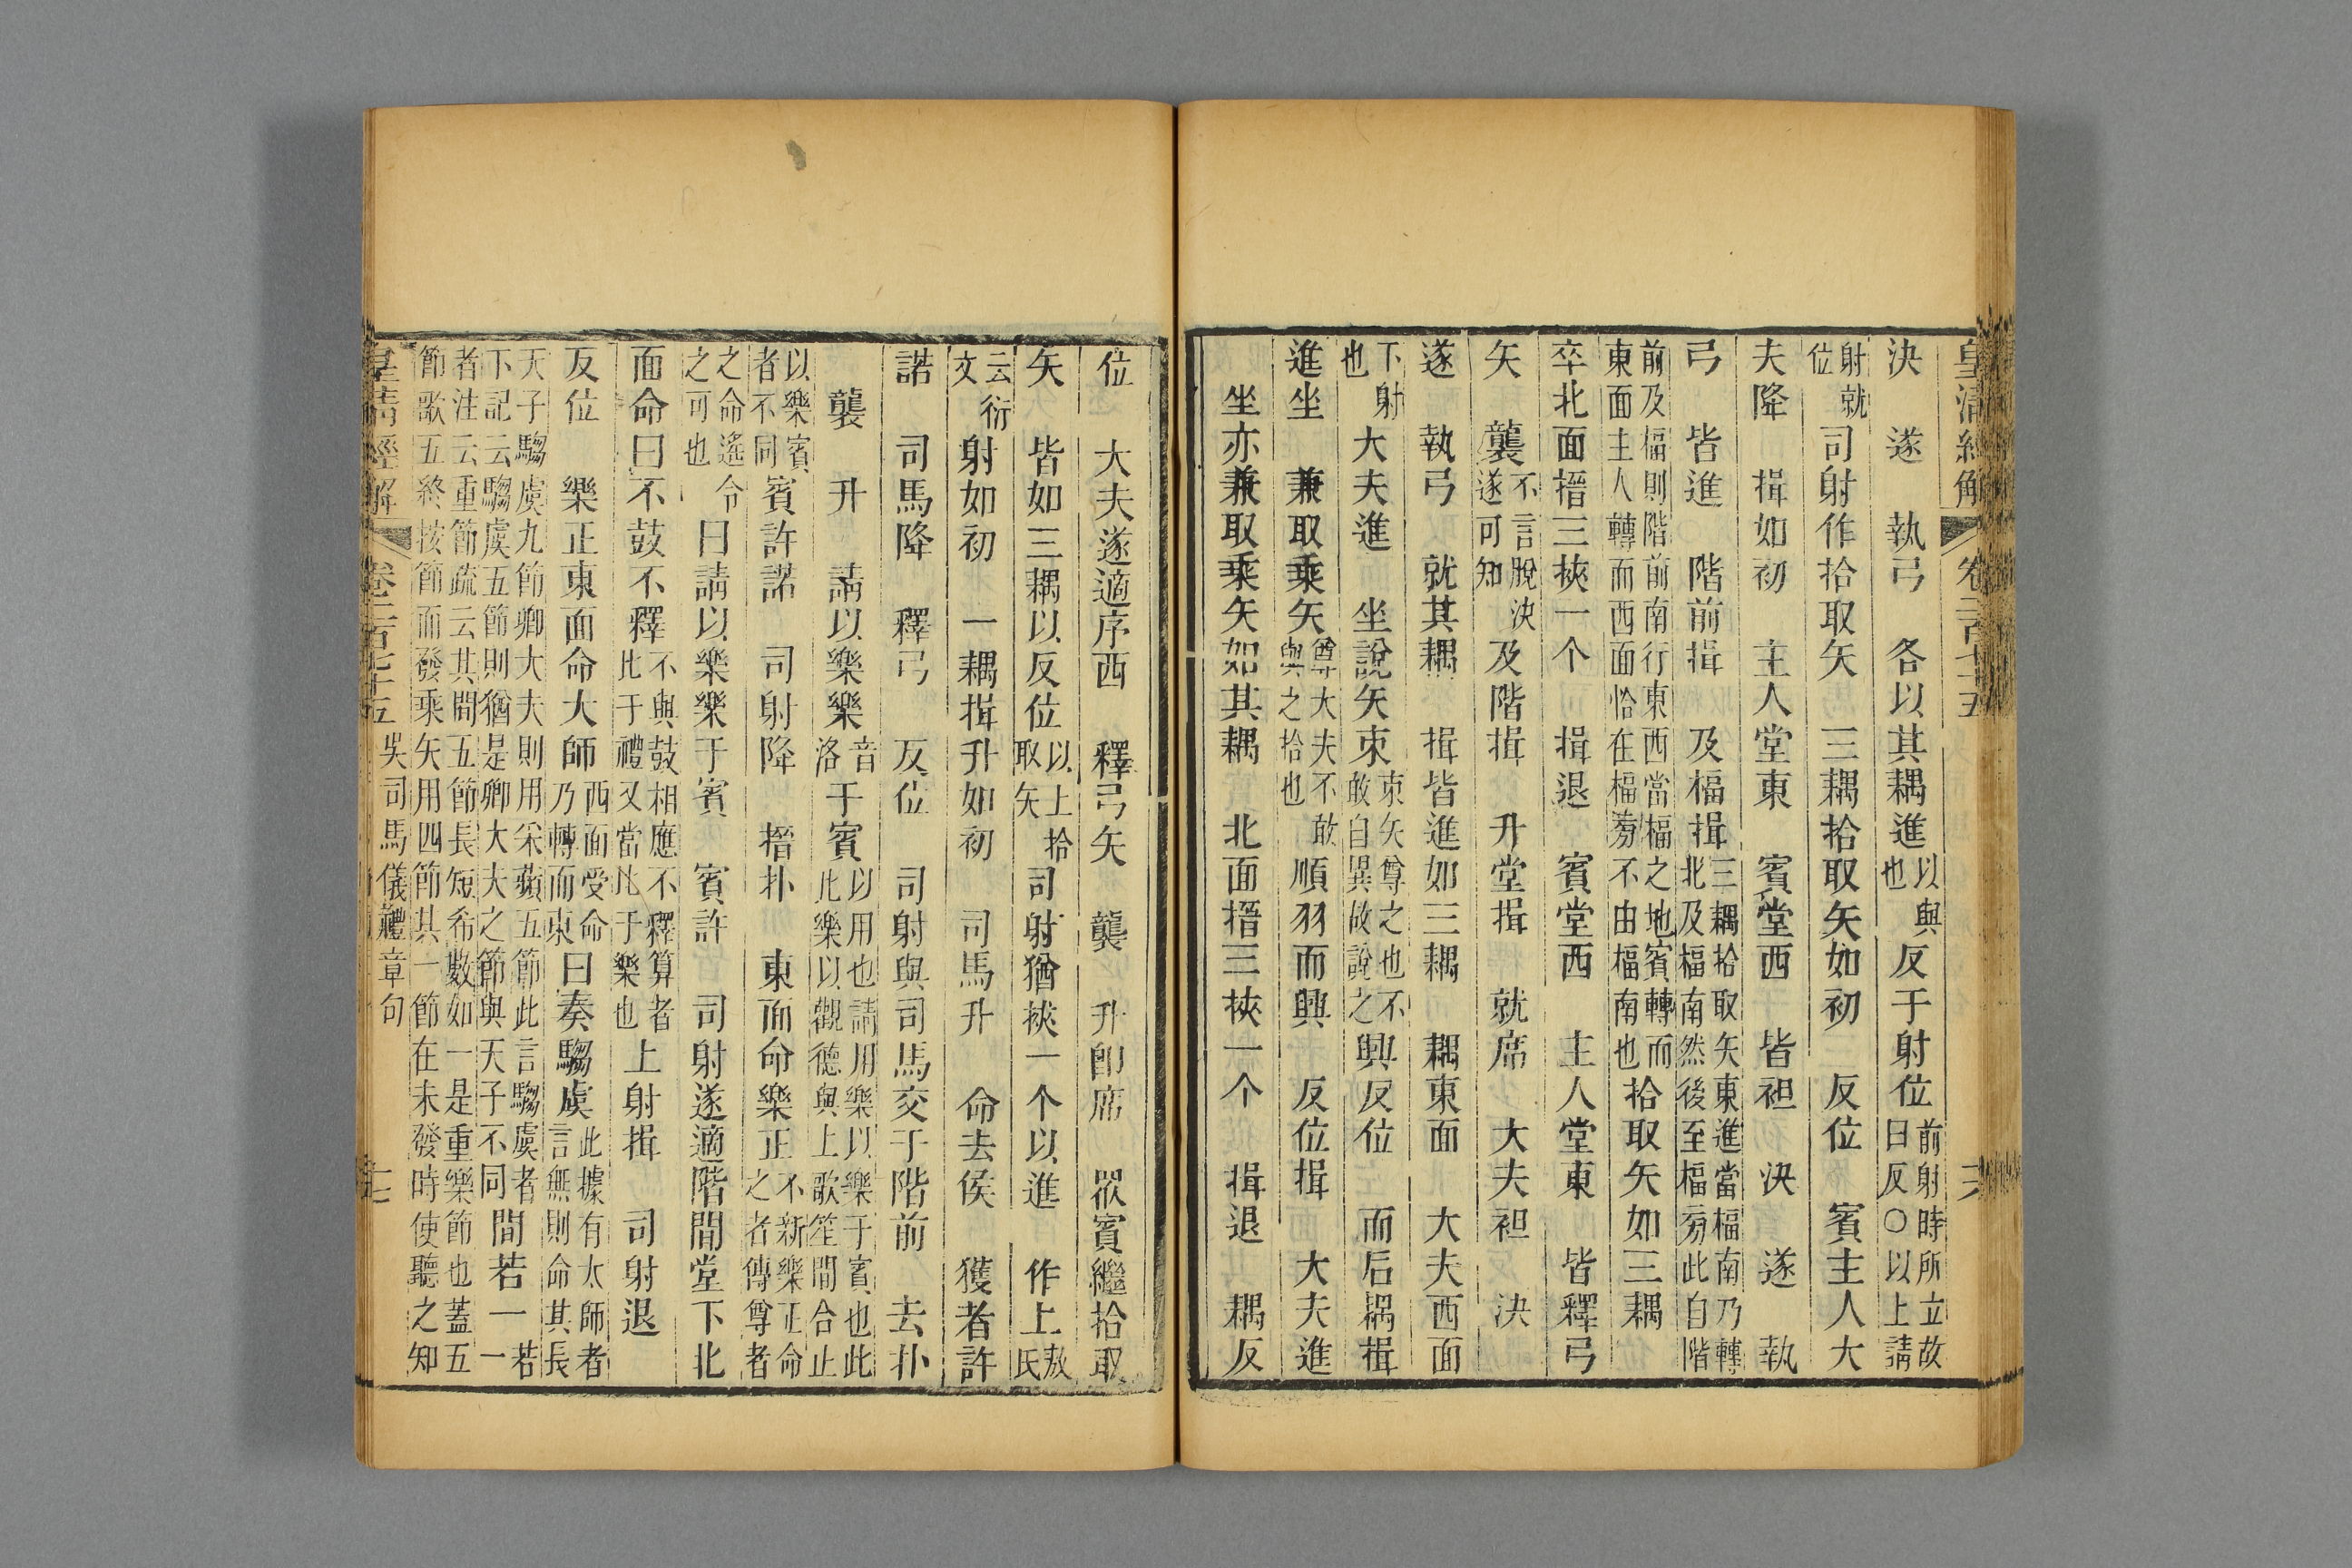 皇清經解 卷二百七十五 六
決 遂 執弓 各以其耦進以與也反于射位前射時所立故曰反〇以上請
射就位 司射作拾取矢 三耦拾取矢如初 反位 賓主人大
夫降 揖如初 主人堂東 賓堂西 皆袒 決 遂 執
弓 皆進 階前揖 及楅揖三耦拾取矢東進當楅南乃轉北及楅南然後至楅旁此自階
前及楅則階前南行東西當楅之地賓轉而東面主人轉而西面恰在楅旁不由楅南也拾取矢如三耦
卒北面搢三挾一个 揖退 賓堂西 主人堂東 皆釋弓
矢 襲不言脫決遂可知及階揖 升堂揖 就席 大夫袒 決
遂 執弓 就其耦 揖皆進如三耦 耦東面 大夫西面
下射也 大夫進 坐說矢束束矢尊之也不敢自異故說之興反位 而后耦揖
進坐 兼取乘矢尊大夫不敢與之拾也順羽而興 反位揖 大夫進
坐亦兼取乘矢如其耦 北面搢三挾一个 揖退 耦反
位 大夫遂適序西 釋弓矢 襲 升卽席 眾賓繼拾取
矢 皆如三耦以反位以上拾取矢司射猶挾一个以進 作上敖氏
云衍文射如初 一耦揖升如初 司馬升 命去侯 獲者許
諾 司馬降 釋弓 反位 司射與司馬交于階前 去扑
襲 升 請以樂樂音洛于賓以用也請用樂以樂于賓也此此樂以觀德與上歌笙間合止
以樂賓者不同賓許諾 司射降 搢扑 東面命樂正不新樂正命之者傳尊者
之命遙令之可也 曰請以樂樂于賓 賓許 司射遂適階間堂下北
面命曰不鼓不釋不與鼓相應不釋算者比于禮又當比于樂也上射揖 司射退
反位 樂正東面命大師西面受命乃轉而東曰奏騶虞此據有太師者言無則命其長
天子騶虞九節卿大夫則用采蘋五節此言騶虞者下記云騶虞五節則猶是卿大夫之節與天子不同間若一若一
者注云重節疏云其間五節長短希數如一是重樂節也蓋五節歌五終按節而發乘矢用四節其一節在未發時使聽之知
皇清經解 卷二百七十五 吳司馬儀禮章句 十七